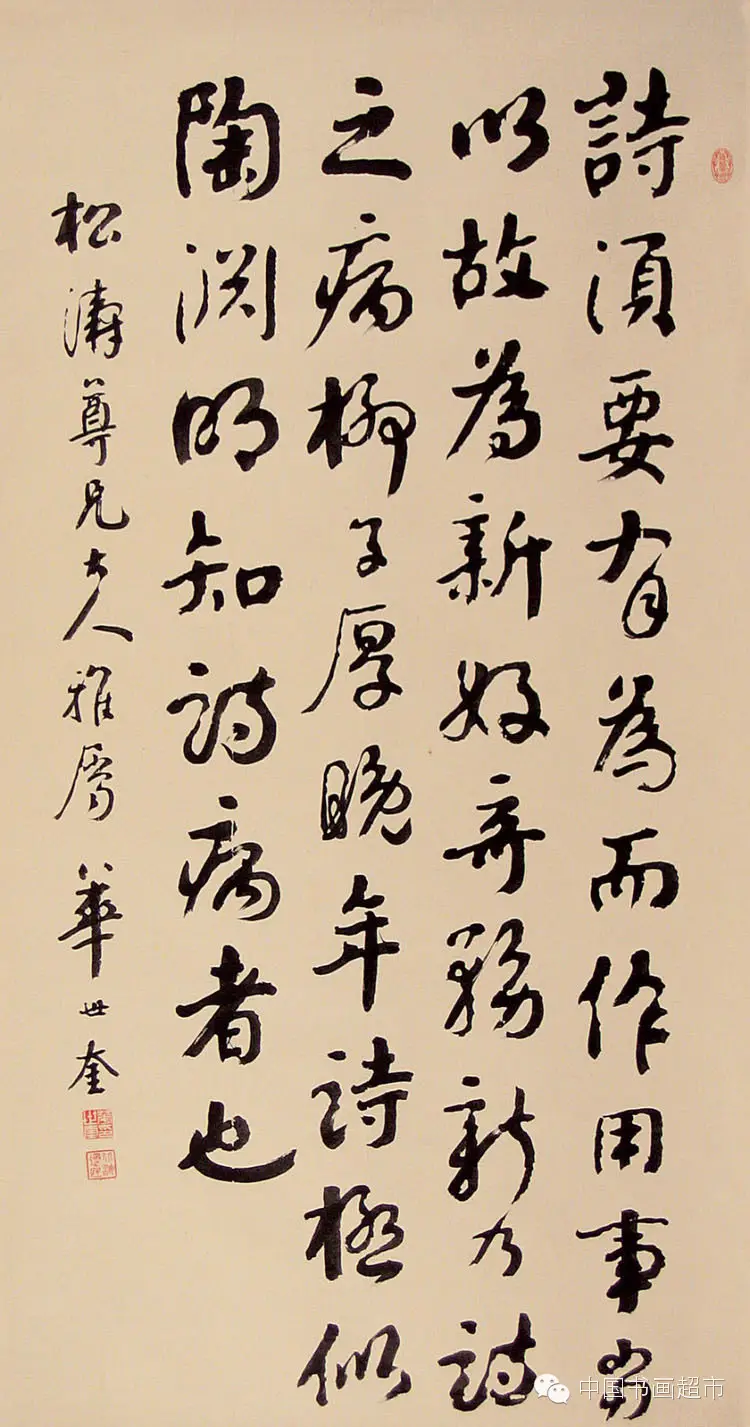 詩須要有為而作用事當
以故為新好奇務新乃詩
之病柳子厚晚年詩極似
陶渊明知詩病者也
松濤尊兄大人雅屬 華世奎
中国书画超市